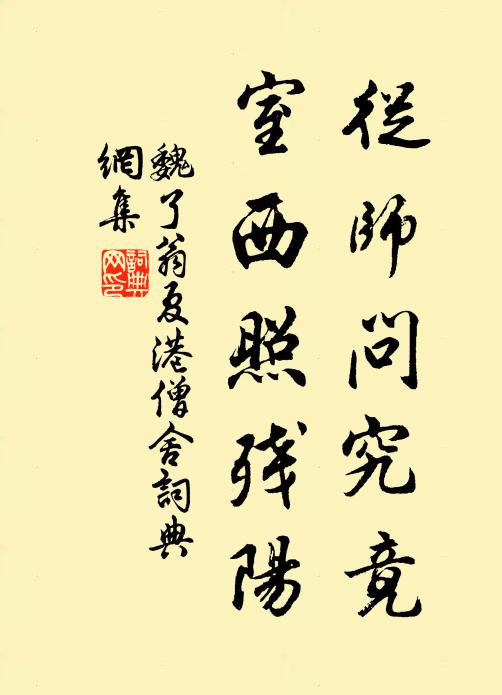 從師問究竟
室西照残陽
魏了翁夏港僧舍詞典
網集
詞典
网印